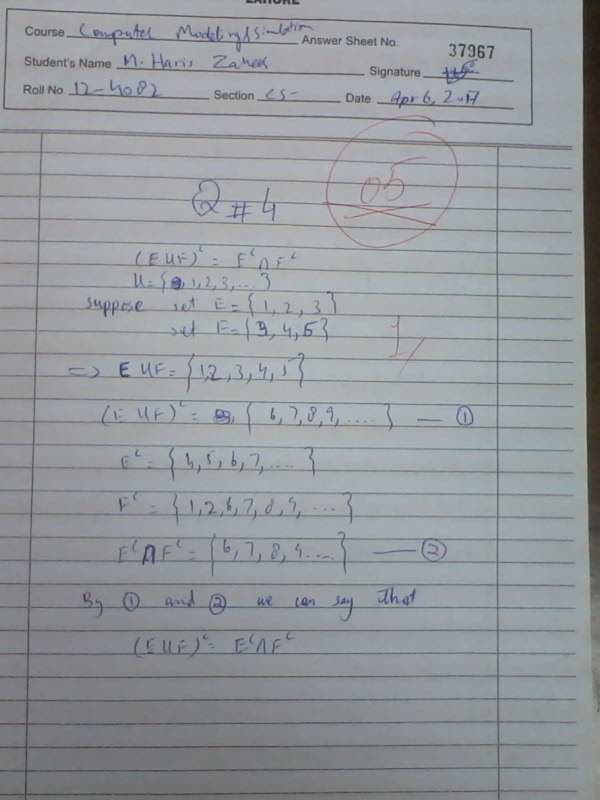 LAHORE
Course Computer Modeling & Simulation Answer Sheet No. 37967
Student's Name M. Haris Zaheer Signature
Roll No 12-4082 Section CS- Date Apr 6, 2017
05
Q #4
(E U F)ᶜ = Eᶜ ∩ Fᶜ
U = { 1, 2, 3, .... }
suppose set E = { 1, 2, 3 }
set F = { 3, 4, 5 }
1
=> E U F = { 1, 2, 3, 4, 5 }
(E U F)ᶜ = { 6, 7, 8, 9, .... } — ①
Eᶜ = { 4, 5, 6, 7, .... }
Fᶜ = { 1, 2, 6, 7, 8, 9, .... }
Eᶜ ∩ Fᶜ = { 6, 7, 8, 9 .... } — ②
By ① and ② we can say that
(E U F)ᶜ = Eᶜ ∩ Fᶜ